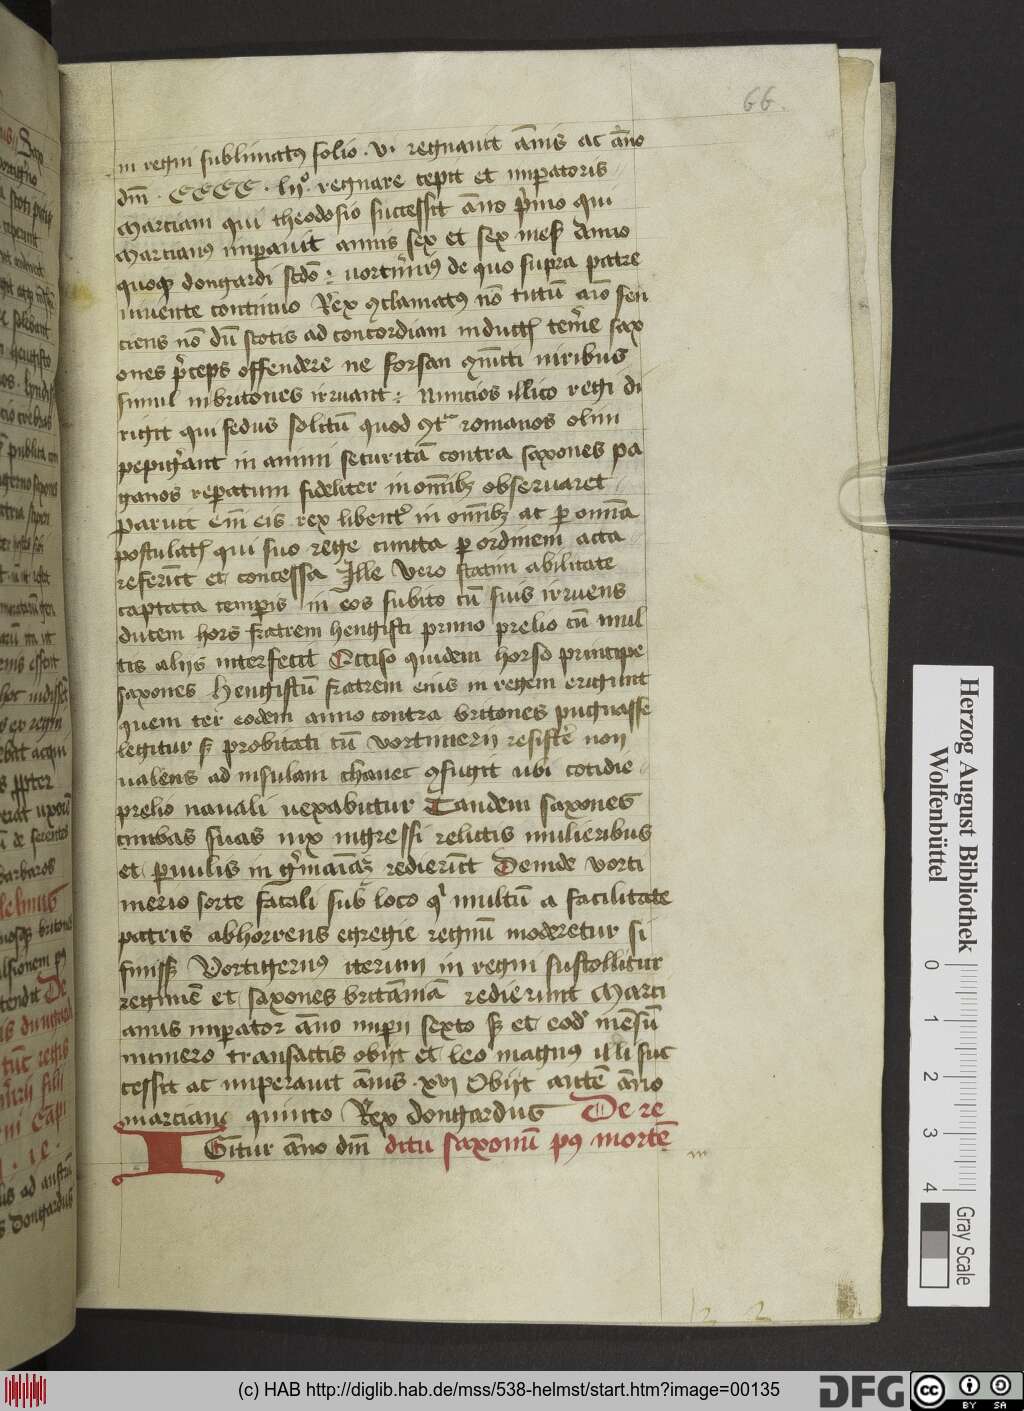 66.
in regni sublimatus solio · v · regnauit ānis ac āno
dm̄ · CCCC · lijº regnare cepit et imperatoris
Marciani qui theodosio successit āno p̄mo qui
Marcianus imperauit annis sex et sex mes̄ Anno
quoque dongardi scd̄o : vortim̄ius de quo supra patre
viuente continuo Rex ꝯclamatus nō tutū aīo sen
ciens nō dū scotis ad concordiam inductis tem̄e sax
ones p̄ceps offendere ne forsan ꝯiūcti viribus
simul in britones irruant : Nuncios illico regi di
rigit qui fedus solitū quod ꝯtra romanos olim
pepigerant in animi securitatē contra saxones pa
ganos reperatum fideliter in omībꝫ obseruaret
Paruit em̄ eis rex libenter in omībꝫ ac per omīa
postulatis qui suo rege cuncta per ordinem acta
referūt et concessa Ille vero statim abilitate
captata temporis in eos subito cū suis irruens
ducem hors fratrem hengisti primo prelio cū mul
tis aliis interfecit Occiso quidem horso principe
saxones hengistū fratrem eius in regem erigunt
quem ter eodem anno contra britones pugnasse
legitur sꝫ probitati cū vortimerii resistere non
ualens ad insulam thanet ꝯfugit ubi cotidie
prelio nauali uexabitur Tandem saxones
cimbas suas mox ingressi relictis mulieribus
et paruulis in germaniā redierūt Deinde vorti
merio sorte fatali sub loco qui multū a facilitate
patris abhorrens egregie regnū moderetur si
fuisset Vortigerius iterum in regni sustollitur
regimē et saxones britāniā redierunt Marci
anus imperator āno imperii sexto sꝫ et eodē mēsiū
numero transactis obijt et leo magnus illi suc
cessit ac imperauit ānis · xvj Obijt autē āno
marciani quinto Rex dongardus De re
IGitur āno dm̄ ditu saxonū post mortē
Herzog August Bibliothek
Wolfenbüttel
0 1 2 3 4
Gray Scale
(c) HAB http://diglib.hab.de/mss/538-helmst/start.htm?image=00135
DFG
cc BY SA